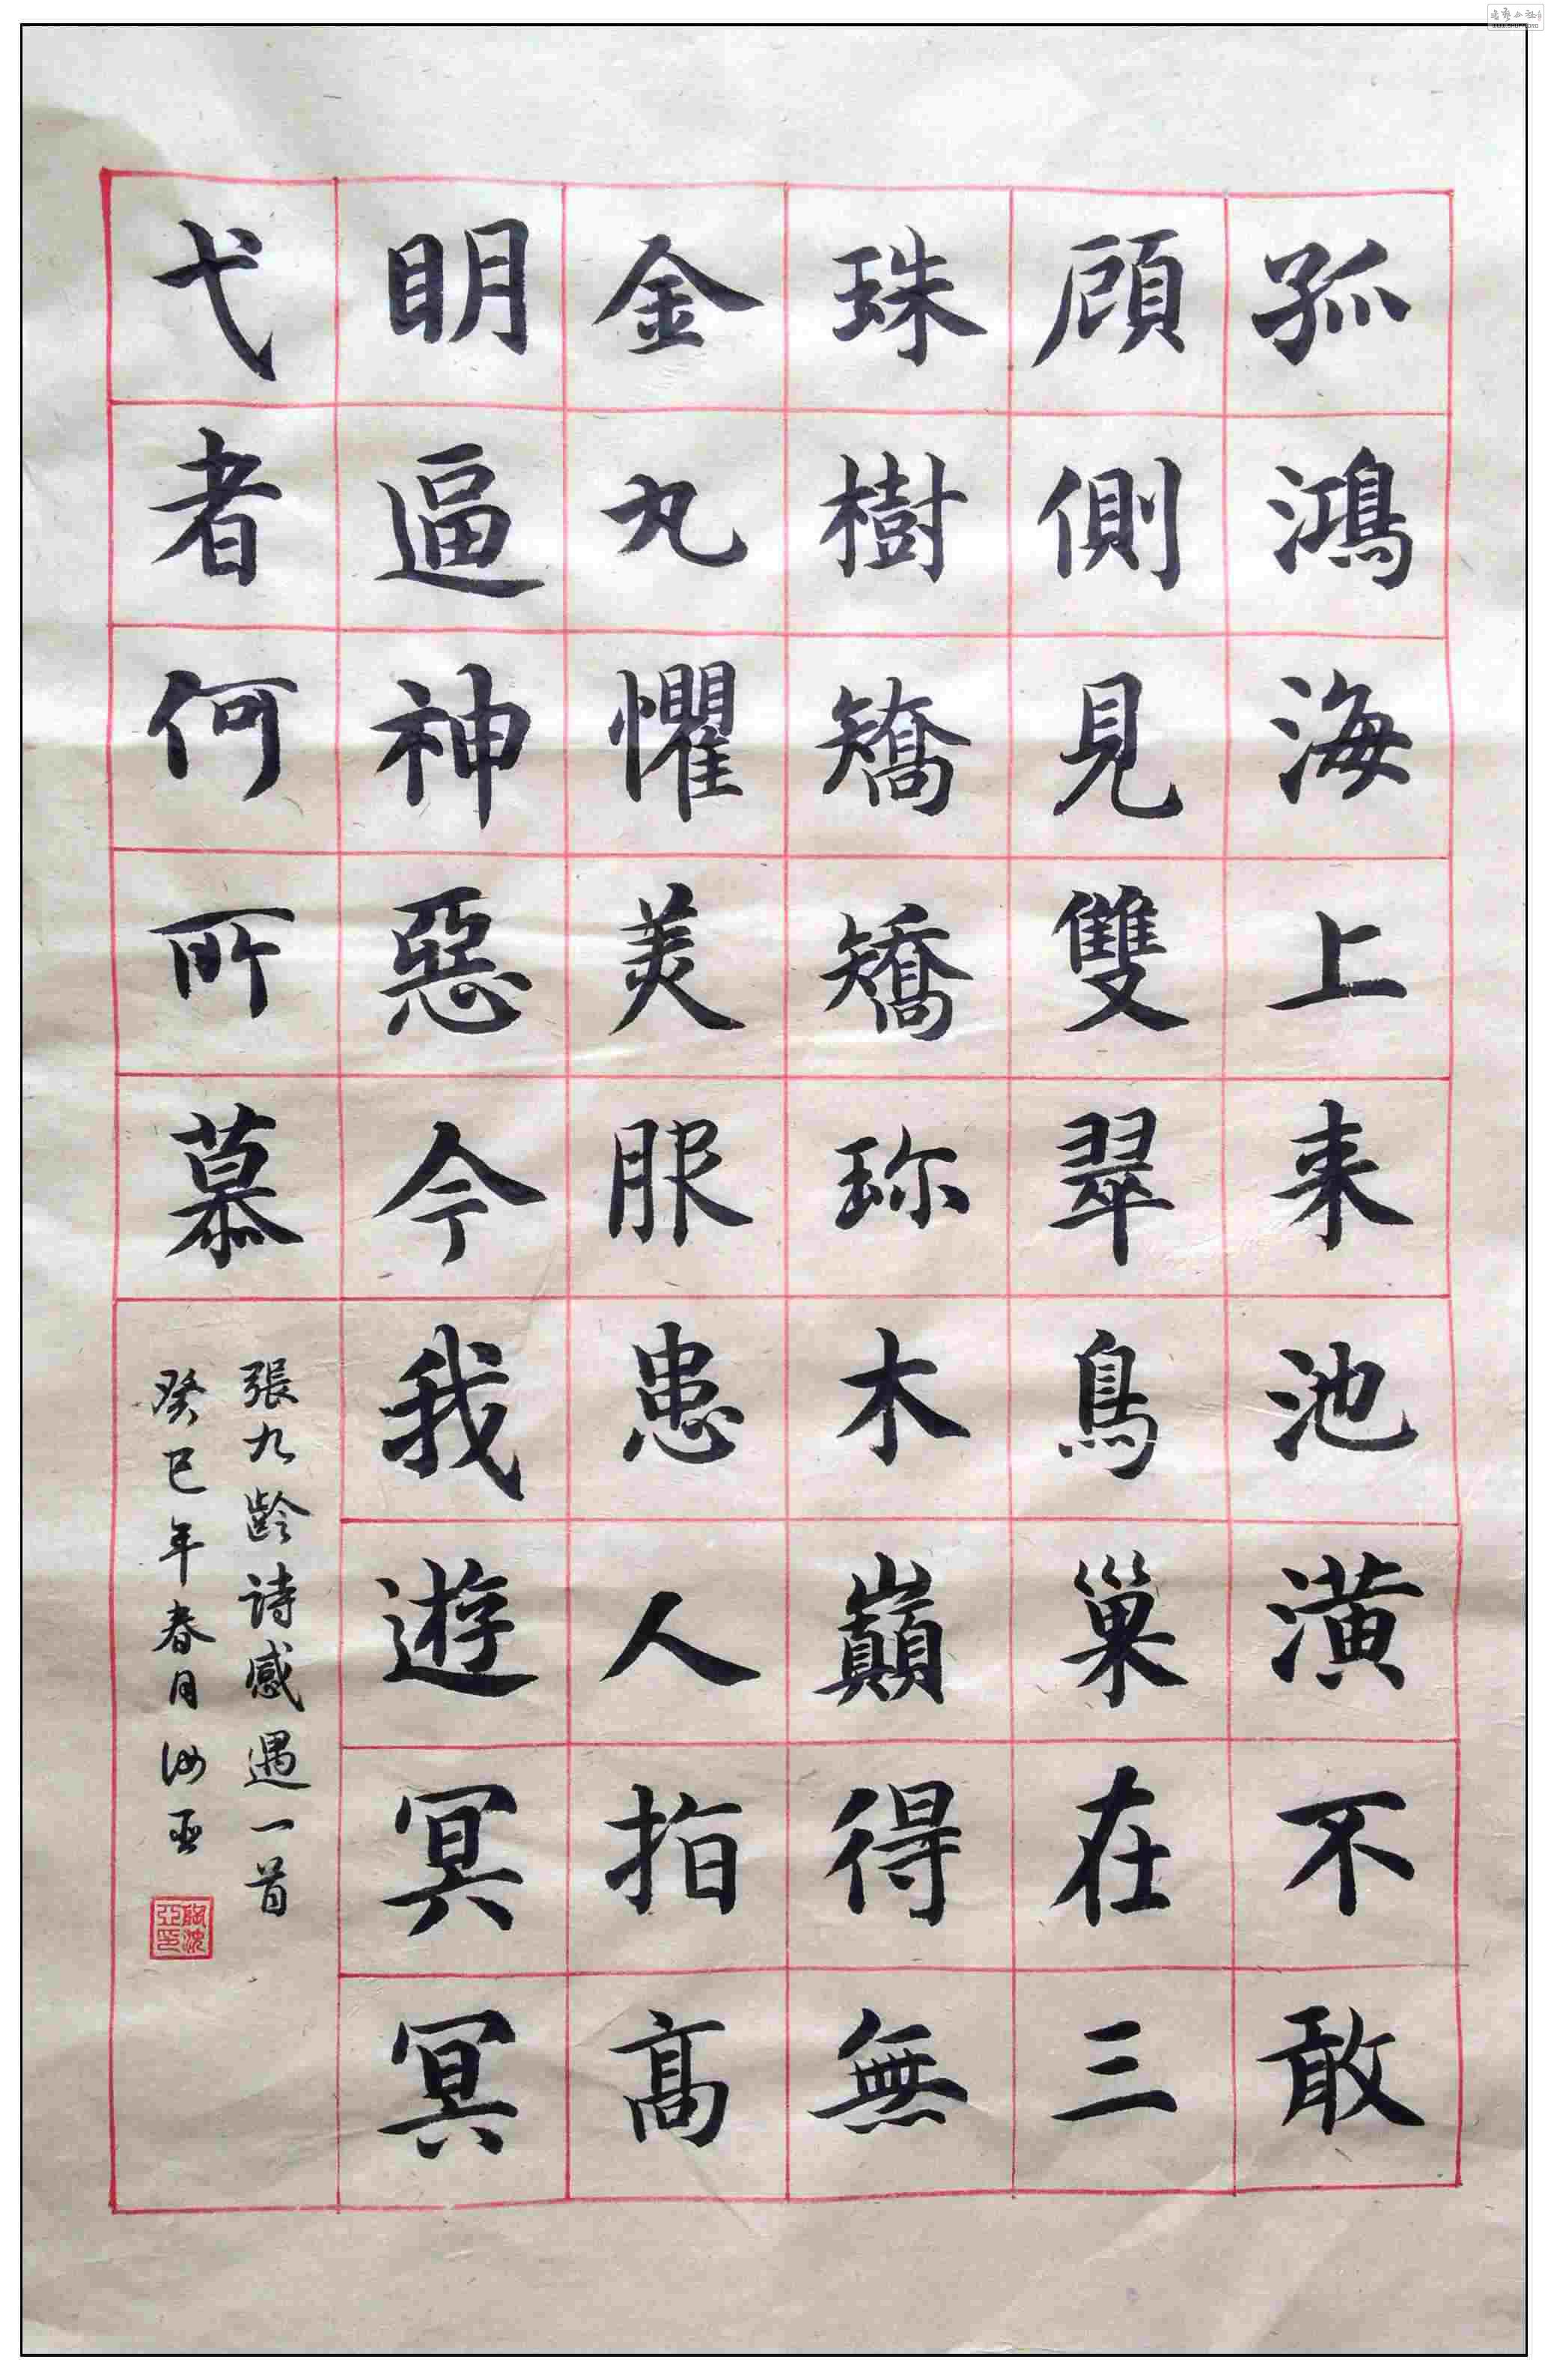 孤鴻海上来池潢不敢
顧側見雙翠鳥巢在三
珠樹矯矯珎木巔得無
金丸懼美服患人指高
明逼神惡今我遊冥冥
弋者何所慕
張九齡诗感遇一首
癸巳年春月汝亚